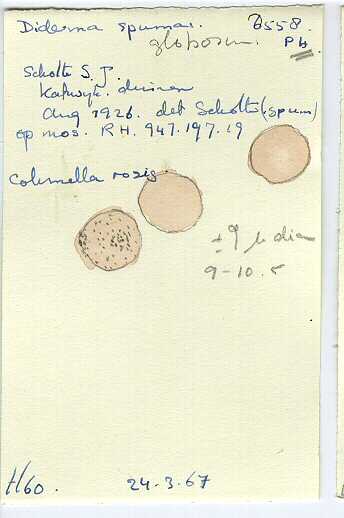 Diderma spumar. B558.
globosum. Pb
Scholte S. J.
Katwyk. duinen
Aug 1926. det Scholte (spum)
op mos. R H. 947.197.19
Columella rosig.
± 9 µ diam
9-10.5
H60. 24-3.67